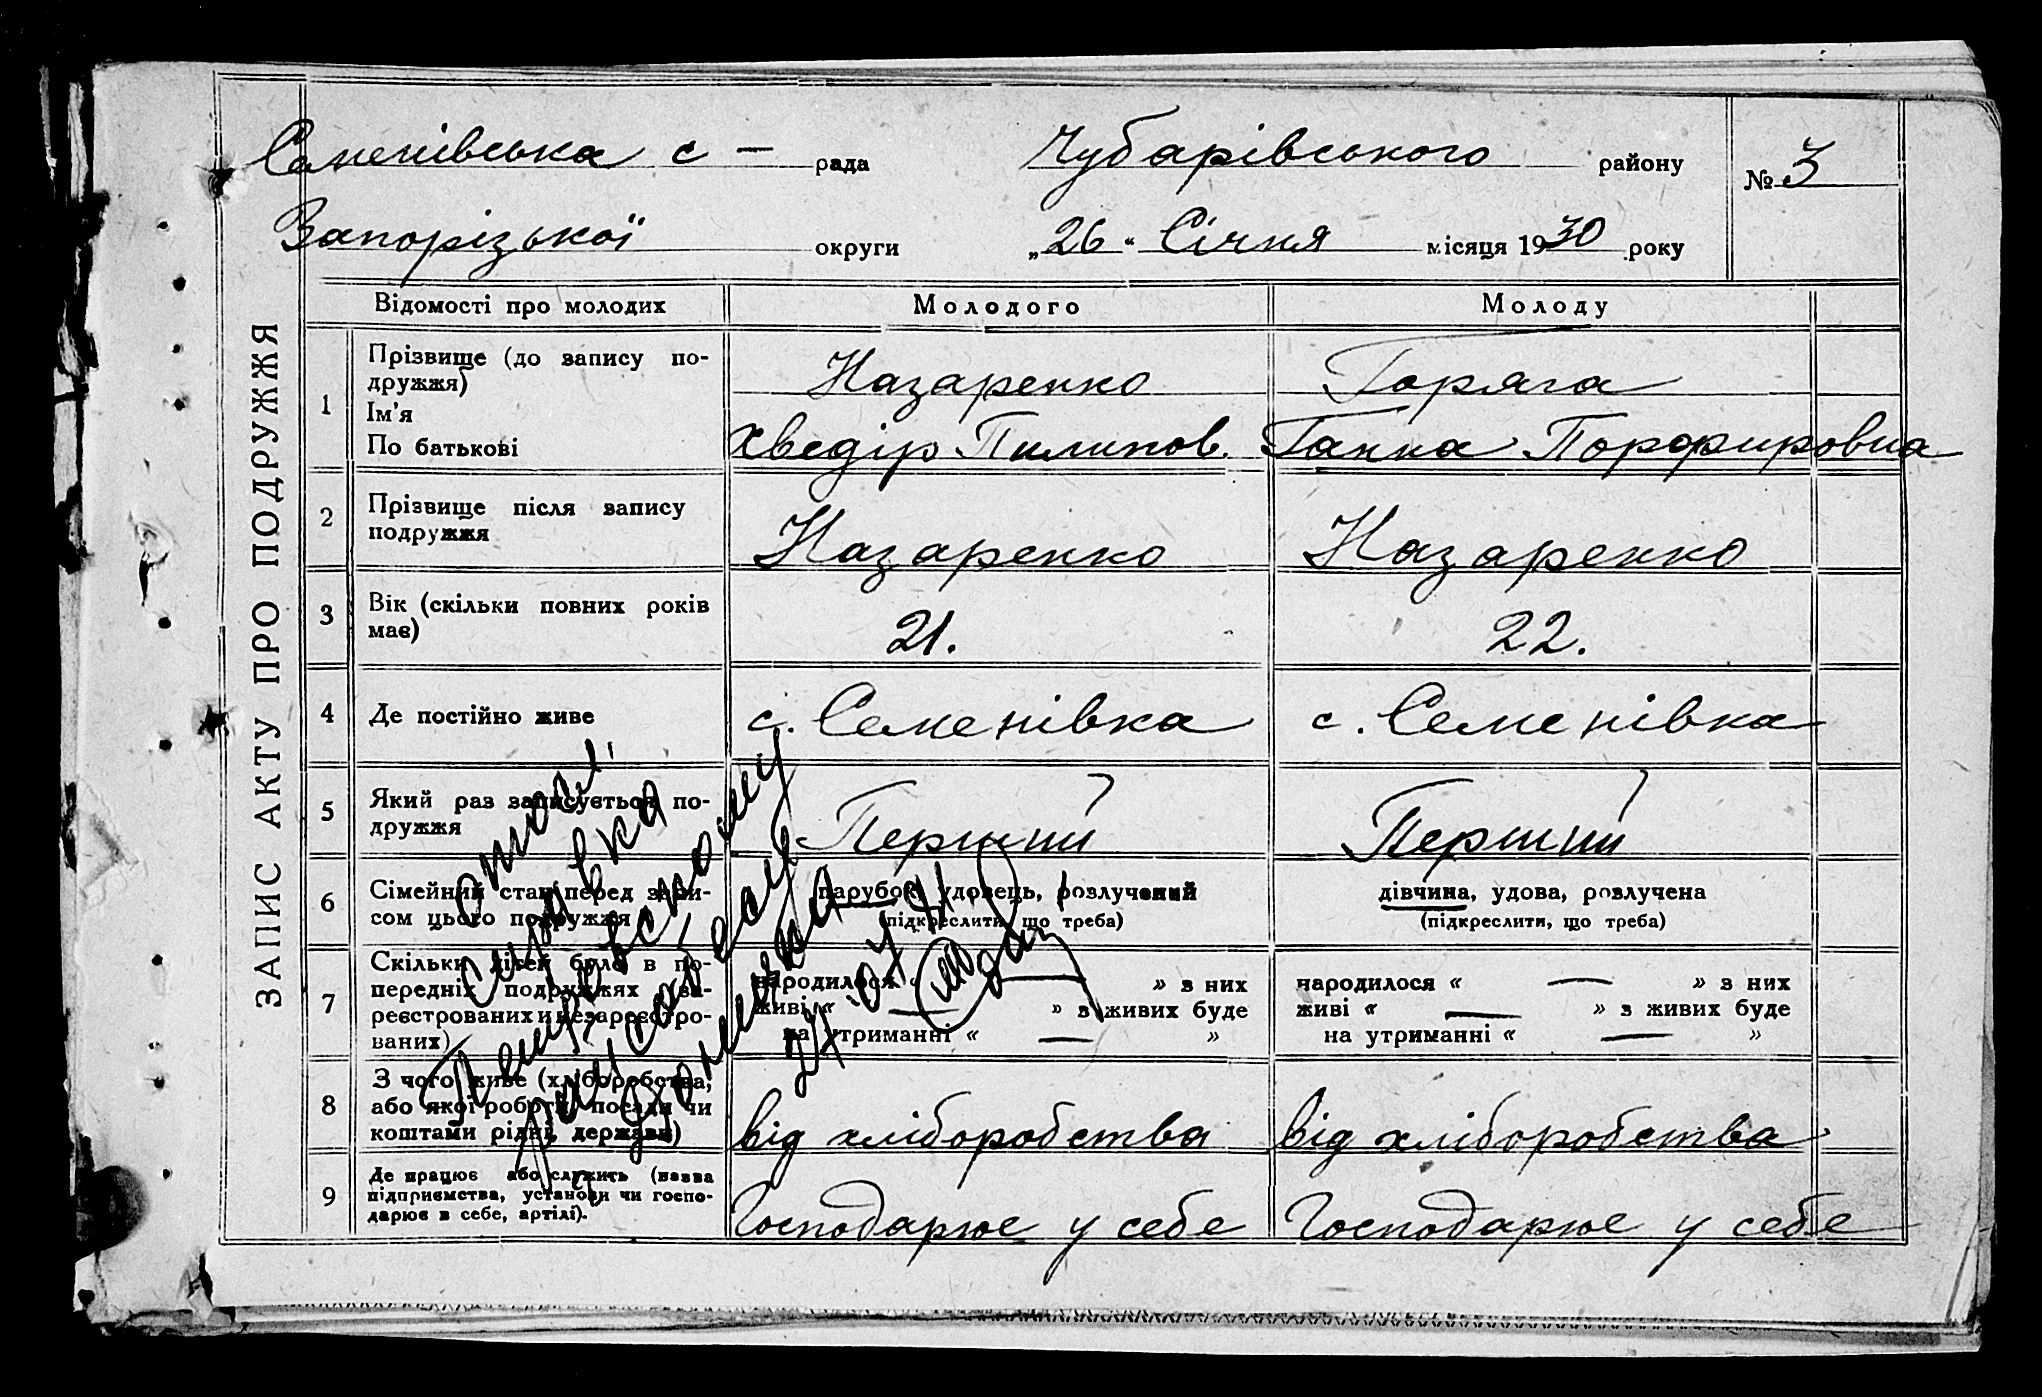 Семенівська с – рада Чубарівського району № 3
Запорізької округи „26“ Січня місяця 1930 року
ЗАПИС АКТУ ПРО ПОДРУЖЖЯ
Відомості про молодих Молодого Молоду
1 Прізвище (до запису по-
дружжя) Назаренко Горяга
Ім'я
По батькові Хведір Пилипов. Ганна Порфировна
2 Прізвище після запису
подружжя Назаренко Назаренко
3 Вік (скільки повних років
має) 21. 22.
4 Де постійно живе с. Семенівка с. Семенівка
5 Який раз записується по-
дружжя Перший Перший
6 Сімейний стан перед запи-
сом цього подружжя парубок, удовець, розлучений дівчина, удова, розлучена
(підкреслити, що треба) (підкреслити, що треба)
7 Скільки дітей було в по-
передніх подружжях (за-
реєстрованих и незареєстро-
ваних)
народилося « — » з них народилося « — » з них
живі « — » з живих буде живі « — » з живих буде
на утриманні « — » на утриманні « — »
8 З чого живе (хліборобства,
або якої роботи, посади чи
коштами рідні, держави) від хліборобства від хліборобства
9 Де працює або служить (назва
підприємства, установи чи госпо-
дарює в себе, артілі). Господарює у себе Господарює у себе
справка
Петровскому
райсобесу